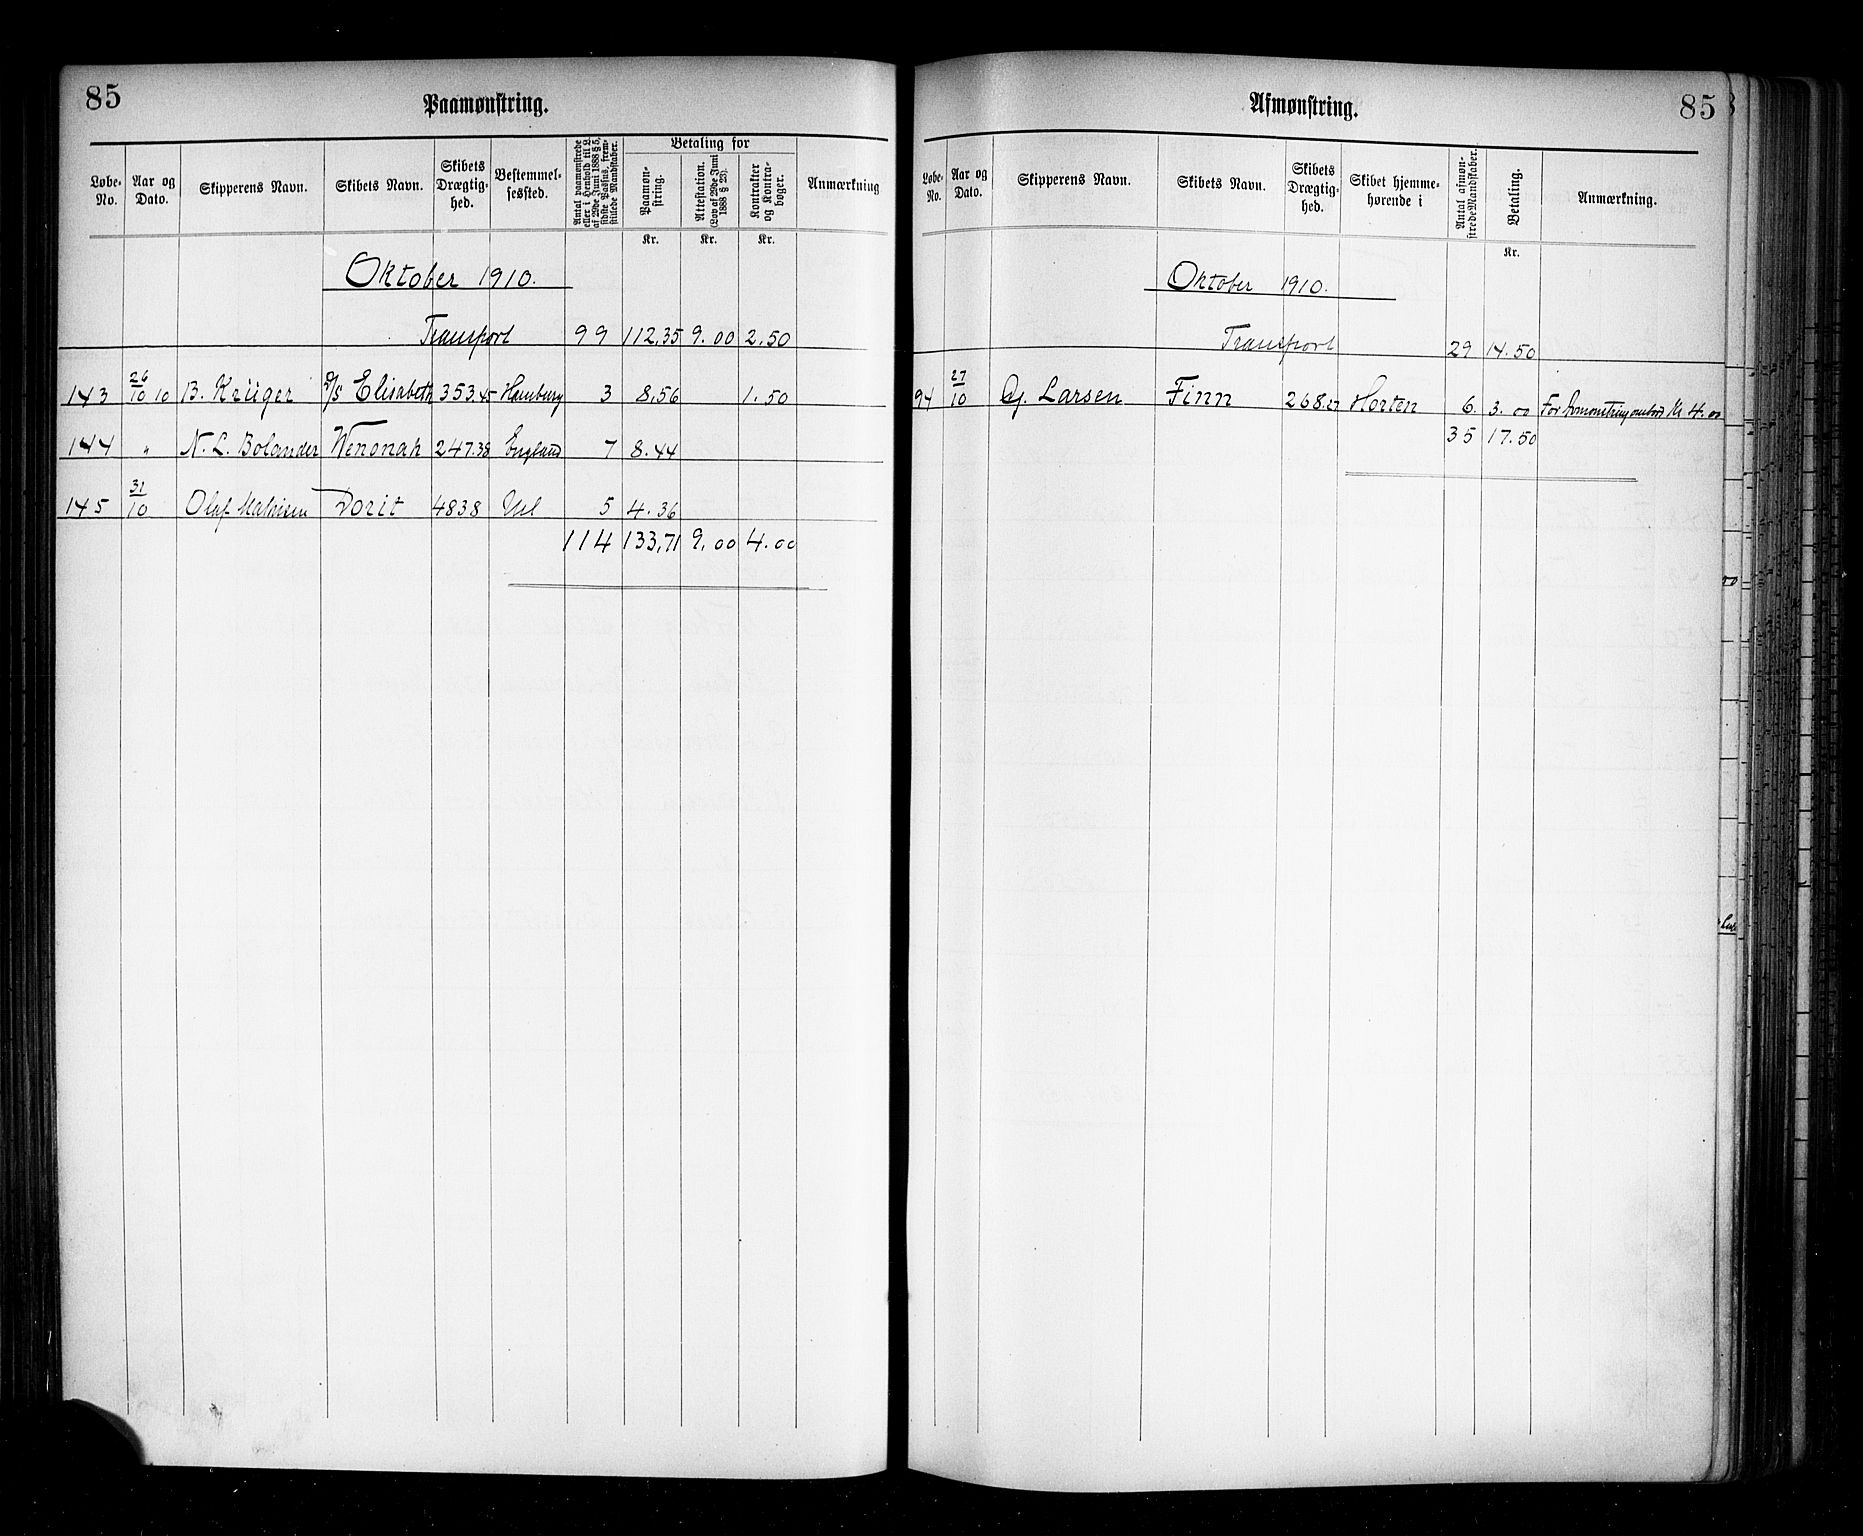 85
Paamønstring.
Løbe-No. Aar og Dato. Skipperens Navn. Skibets Navn. Skibets Drægtig-hed. Bestemmel-sessted. Antal paamønstrede eller i Henhold til L. af 29de Juni 1888 § 5, sidste Passus, frem-stillede Mandskaber. Betaling for Paamøn-string. Attestation. (Lov af 29de Juni 1888 § 23). Kontrakter og Kontra-bøger. Anmærkning
Kr. Kr. Kr.
Oktober 1910.
Transport 99 112,35 9.00 2.50
143 26/10 10 B. Krüger D/s Elisabeth 353.45 Hamburg 3 8,56 1.50
144 " N. L. Bolander Wenonah 247.38 England 7 8.44
145 31/10 Olaf Mathisen Dorit 4838 5 4.36
114 133,71 9.00 4.00
85
Afmønstring.
Løbe-No. Aar og Dato. Skipperens Navn. Skibets Navn. Skibets Drægtig-hed. Skibet hjemme-hørende i Antal afmøn-strede Mandskaber. Betaling. Anmærkning.
Kr.
Oktober 1910.
Transport 29 14.50
94 27/10 Larsen Finn 268.27 Horten 6 3.00 For Avmønstring ombord Kr 4.00
35 17.50